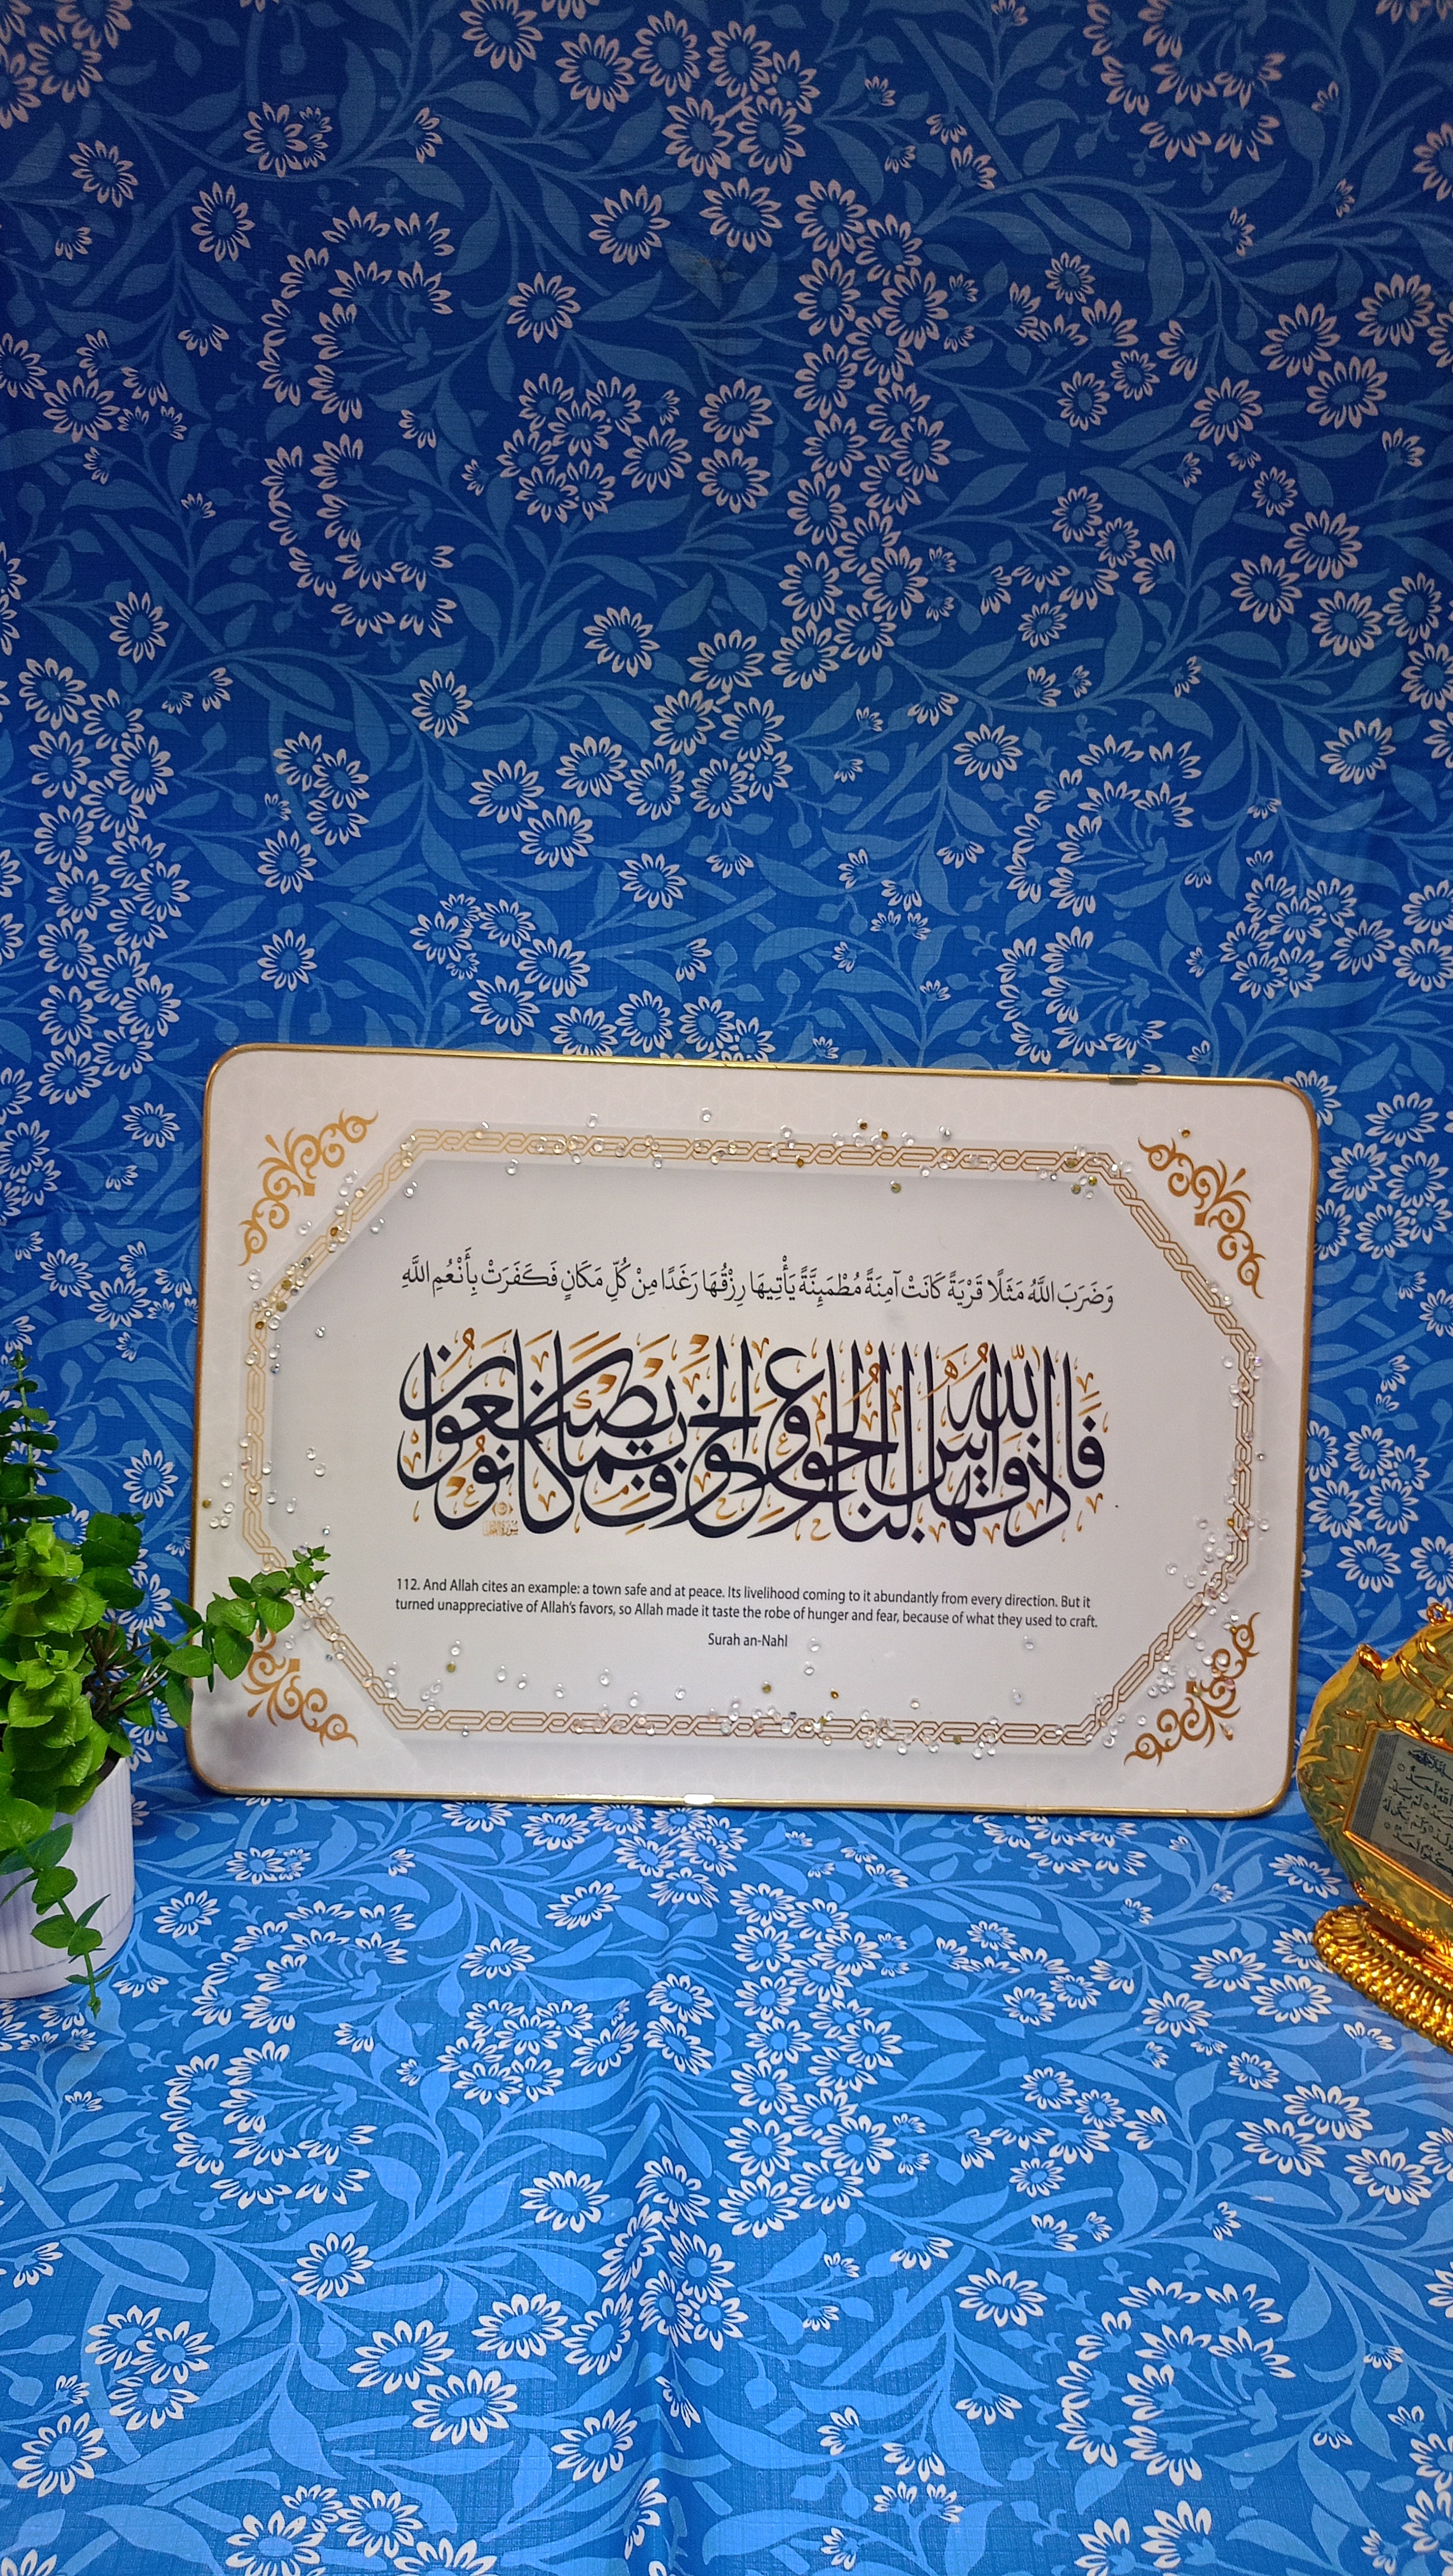 وَضَرَبَ اللَّهُ مَثَلًا قَرْيَةً كَانَتْ آمِنَةً مُطْمَئِنَّةً يَأْتِيهَا رِزْقُهَا رَغَدًا مِنْ كُلِّ مَكَانٍ فَكَفَرَتْ بِأَنْعُمِ اللَّهِ
فَأَذَاقَهَا اللَّهُ لِبَاسَ الْجُوعِ وَالْخَوْفِ بِمَا كَانُوا يَصْنَعُونَ
112. And Allah cites an example: a town safe and at peace. Its livelihood coming to it abundantly from every direction. But it
turned unappreciative of Allah's favors, so Allah made it taste the robe of hunger and fear, because of what they used to craft.
Surah an-Nahl